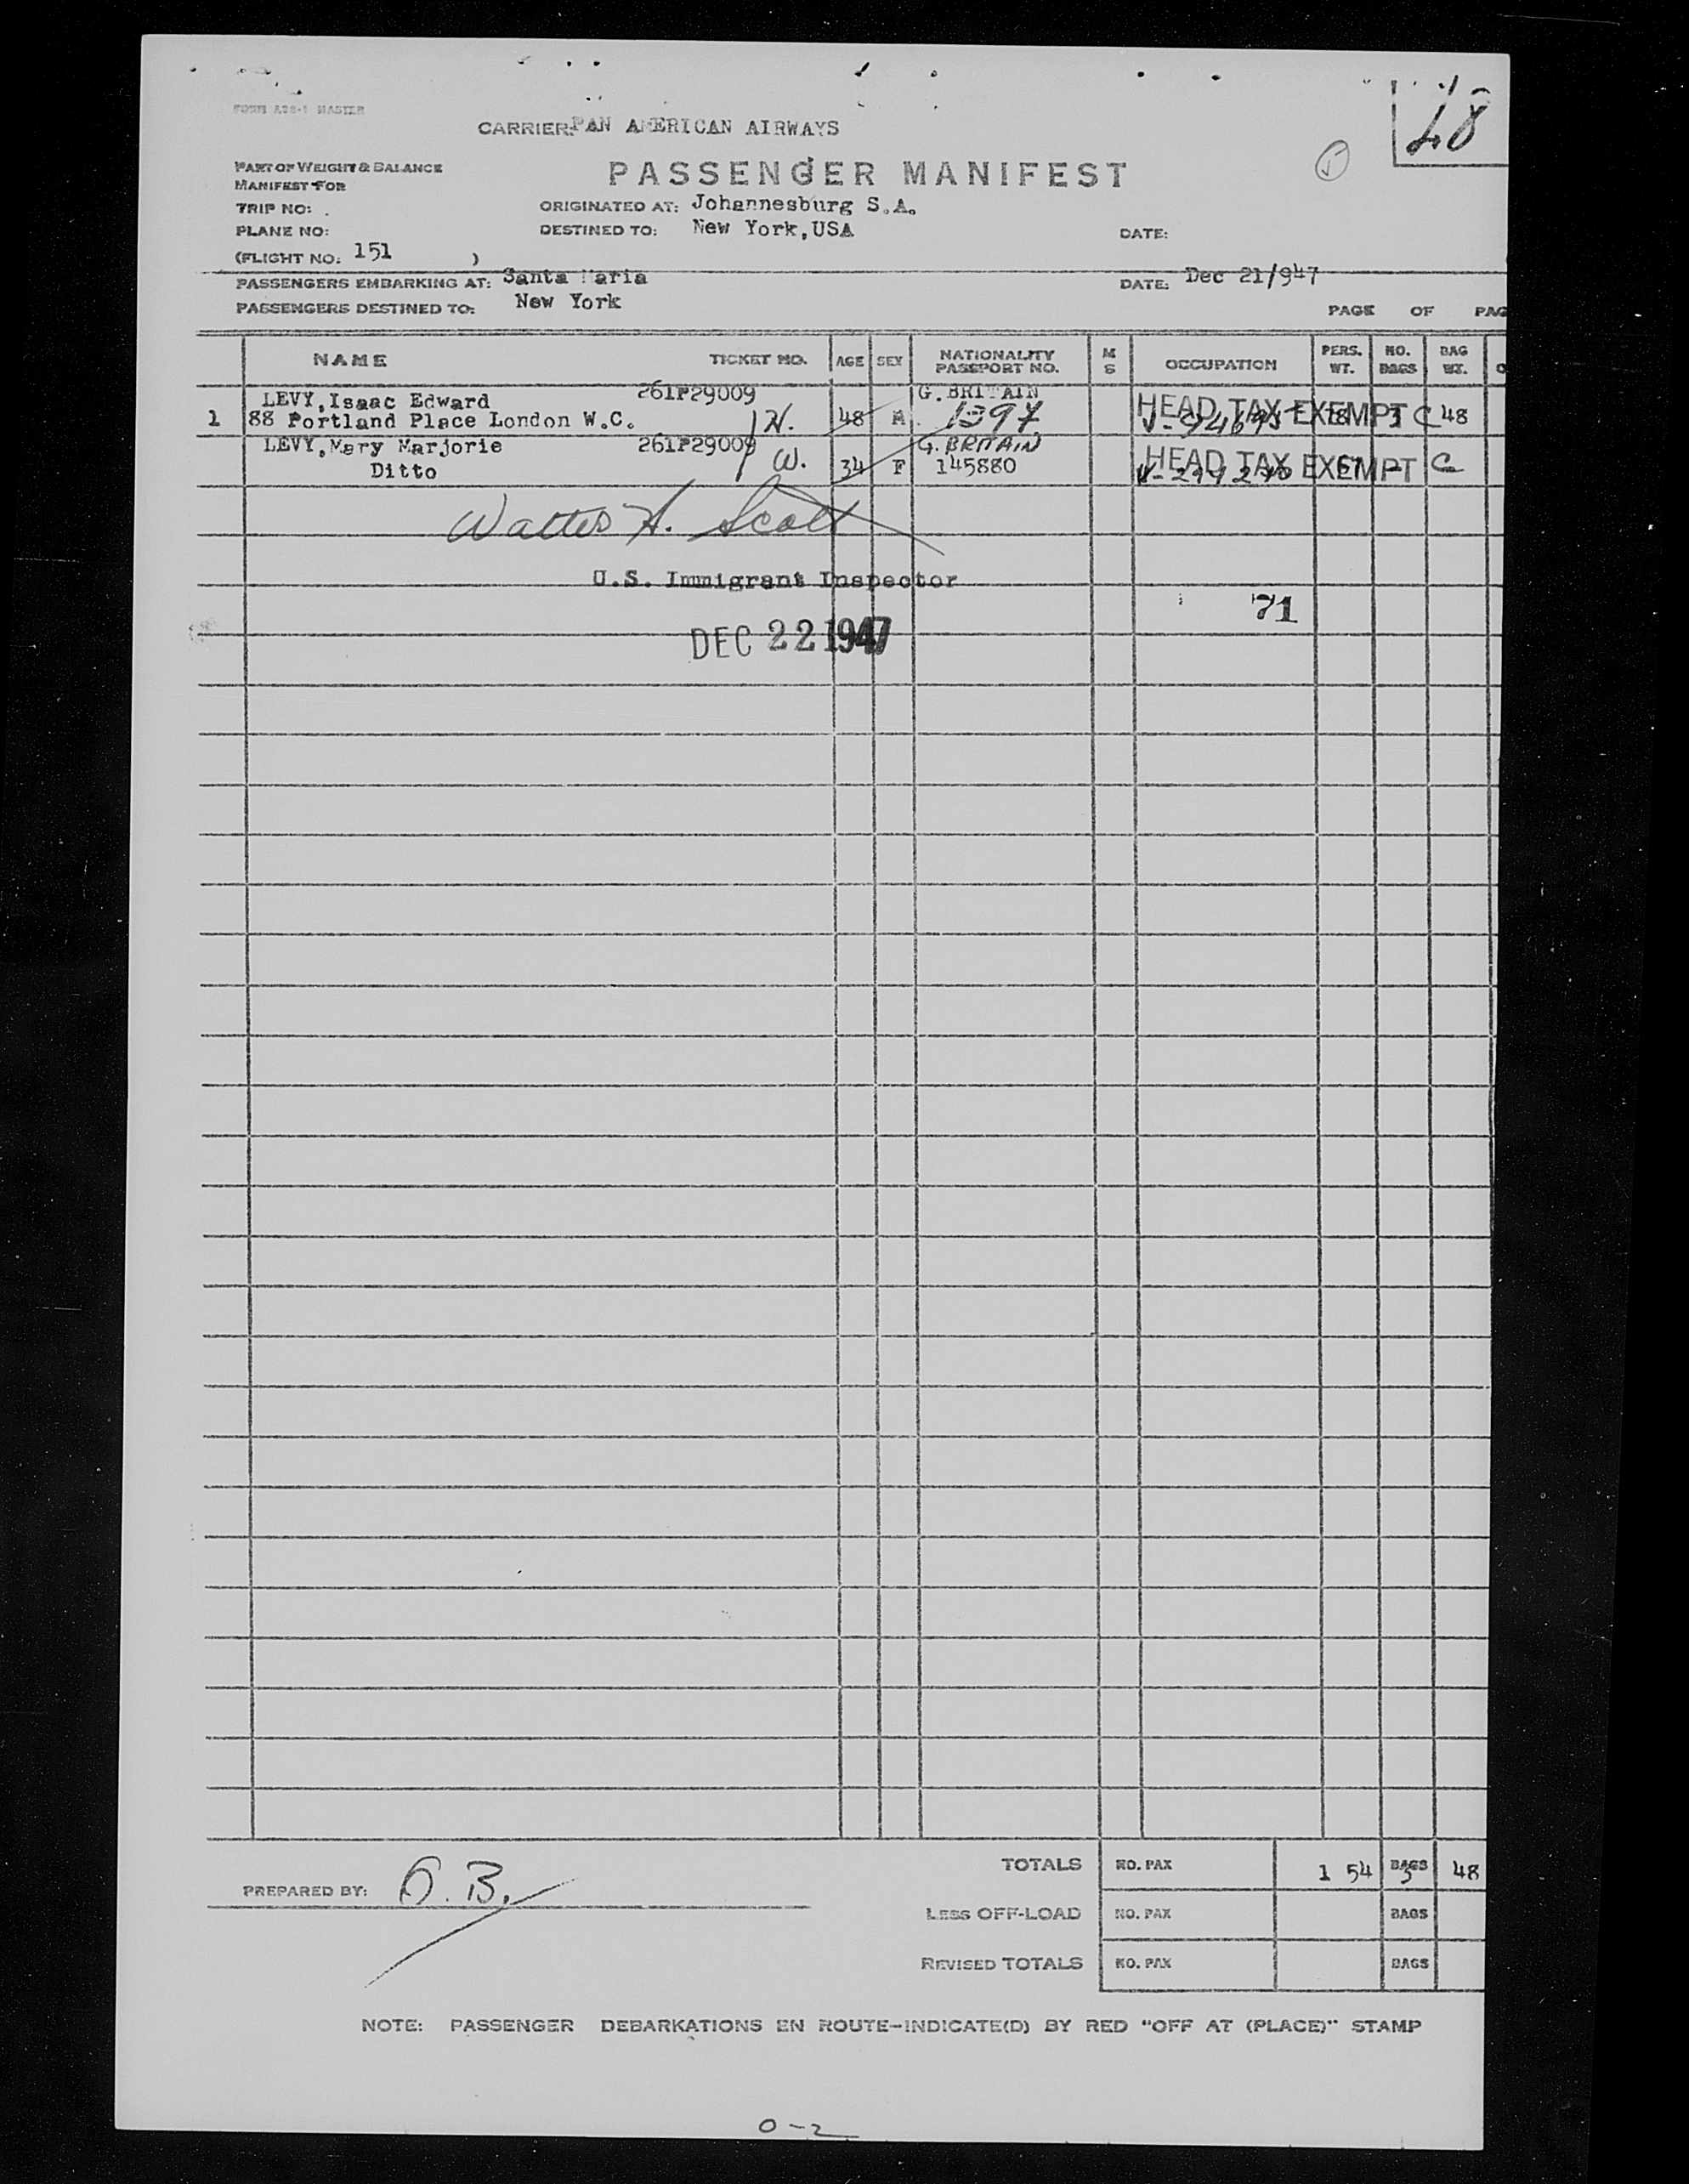 FORM A28-1 MASTER
48
CARRIER: PAN AMERICAN AIRWAYS
PART OF WEIGHT & BALANCE
MANIFEST FOR
PASSENGER MANIFEST
5
TRIP NO:
ORIGINATED AT: Johannesburg S.A.
PLANE NO:
DESTINED TO: New York,USA
DATE:
(FLIGHT NO: 151 )
PASSENGERS EMBARKING AT: Santa Maria
DATE: Dec 21/947
PASSENGERS DESTINED TO: New York
PAGE OF PAG
NAME TICKET NO. AGE SEX NATIONALITY PASSPORT NO. M S OCCUPATION PERS. WT. NO. BAGS BAG WT.
LEVY,Isaac Edward 261P29009 G. BRITAIN HEAD TAX EXEMPT
1 88 Portland Place London W.C. H. 48 M 3 C 48
LEVY,Mary Marjorie 261P29009 G. BRITAIN HEAD TAX EXEMPT
Ditto W. 34 F 145880 C
Walter H. Scott
U.S. Immigrant Inspector
71
DEC 22 1947
TOTALS NO. PAX 1 54 BAGS 3 48
PREPARED BY: O.B.
LESS OFF-LOAD NO. PAX BAGS
REVISED TOTALS NO. PAX BAGS
NOTE: PASSENGER DEBARKATIONS EN ROUTE-INDICATE(D) BY RED "OFF AT (PLACE)" STAMP
0-2